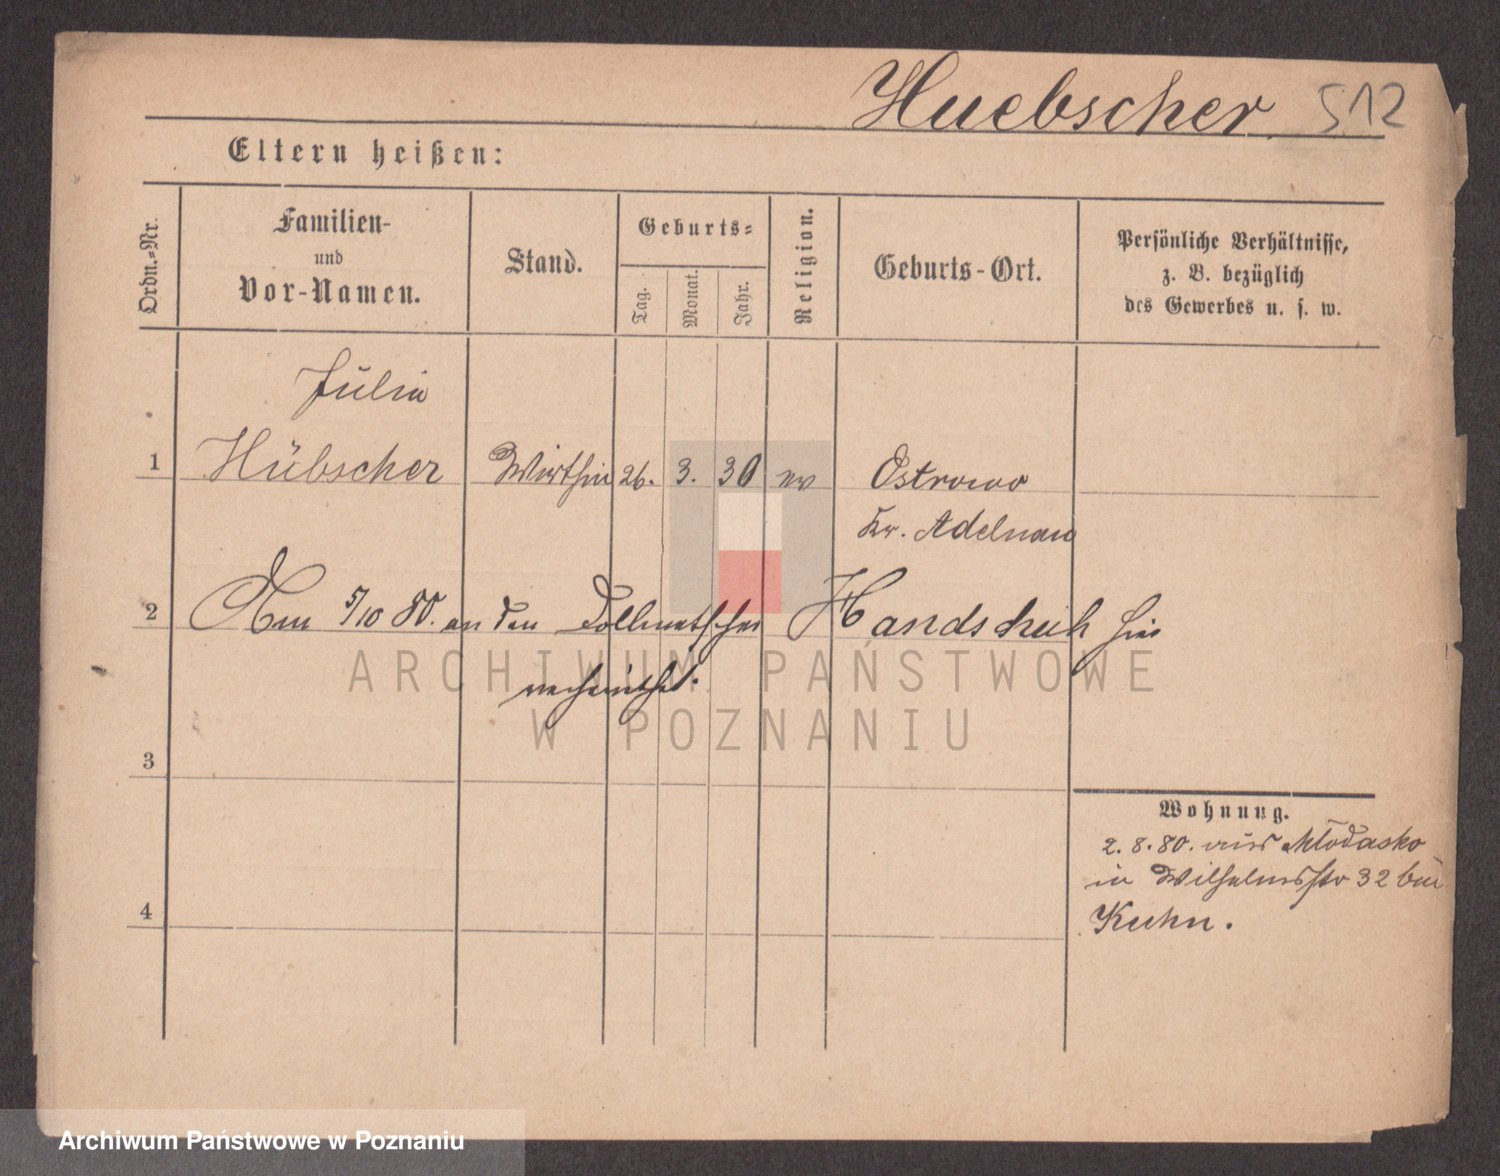 Huebscher 512
Eltern heißen:
Ordn.-Nr.
Familien-
und
Vor-Namen.
Stand.
Geburts-
Tag.
Monat.
Jahr.
Religion.
Geburts-Ort.
Persönliche Verhältnisse,
z. B. bezüglich
des Gewerbes u. s. w.
Julia
1 Hübscher Wirthin 26. 3. 30 ev Ostrowo
Kr. Adelnau
2 Am 5/10 80. an den Dollmetscher Handschuh hier
verheirathet.
ARCHIWUM PAŃSTWOWE
W POZNANIU
3
Wohnung.
2. 8. 80. aus Mlodasko
in Wilhelmsstr 32 bei
4
Kuhn.
Archiwum Państwowe w Poznaniu